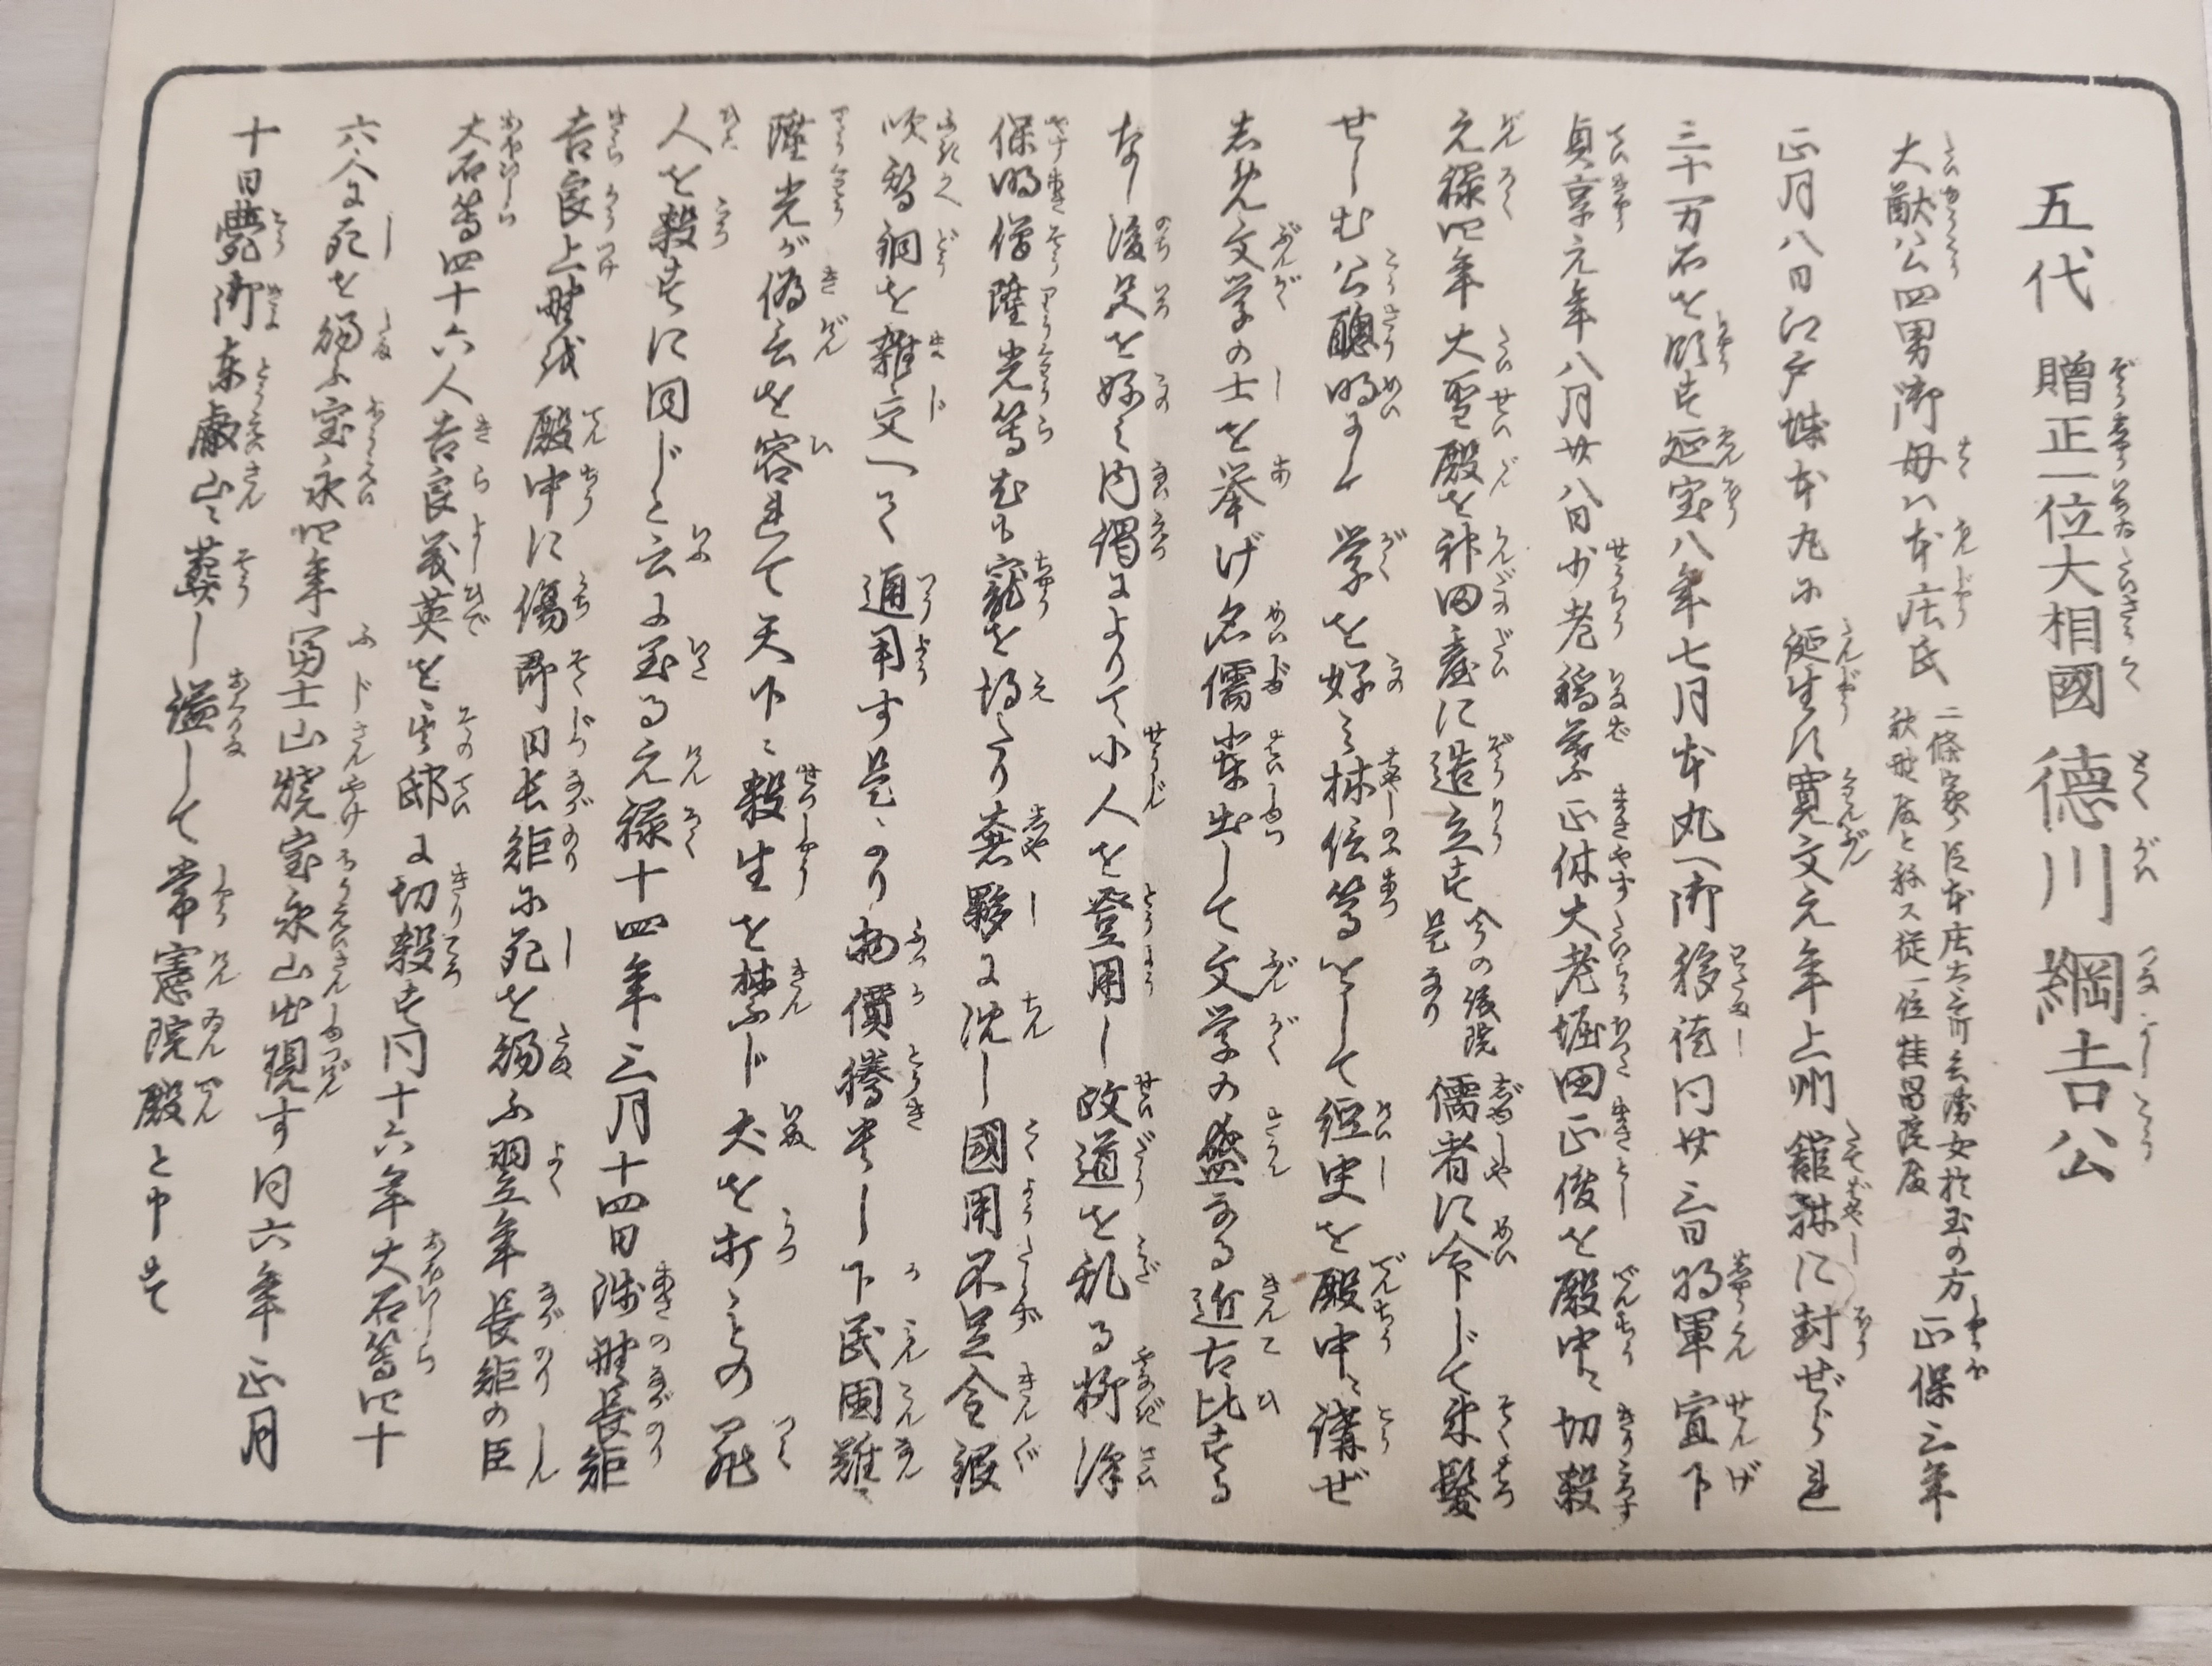 五代 贈正一位大相國 德川綱吉公
大猷公四男御母ハ本庄氏 二條家ノ臣本庄太 女於玉の方 秋野殿と称ス従一位桂昌院殿 正保三年
正月八日江戸城本丸に誕生す寛文元年上州舘林に封ぜられ
三十万石を領す延宝八年七月本丸へ御移徙同廿三日将軍宣下
貞享元年八月廿八日少老稲葉正休大老堀田正俊を殿中に切殺
元禄四年大聖殿を神田臺に造立す 今の後院是なり 儒者に令じて束髪
せしむ公聰明にして学を好み林信篤をして経史を殿中に講ぜ
しめ文学の士を挙げ名儒輩出して文学の盛なる近古比するな
なし後色を好み内謁によりて小人を登用し政道を乱る柳澤
保明僧隆光等尤も寵を得たり奢移に沈し國用不足金銀
吹替銅を雑交へて通用す是より物價騰貴し下民困難す
隆光が偽言を容れて天下に殺生を禁じ犬を打ものの罪
人を殺すに同じと云に至る元禄十四年三月十四日浅野長矩
吉良上野介を殿中に傷即日長矩に死を賜ふ翌年長矩の臣
大石等四十六人吉良義英を其邸に切殺す同十六年大石等四十
六人に死を賜ふ宝永四年冨士山焼宝永山出現す同六年正月
十日薨御東叡山に葬し謚して常憲院殿と申す